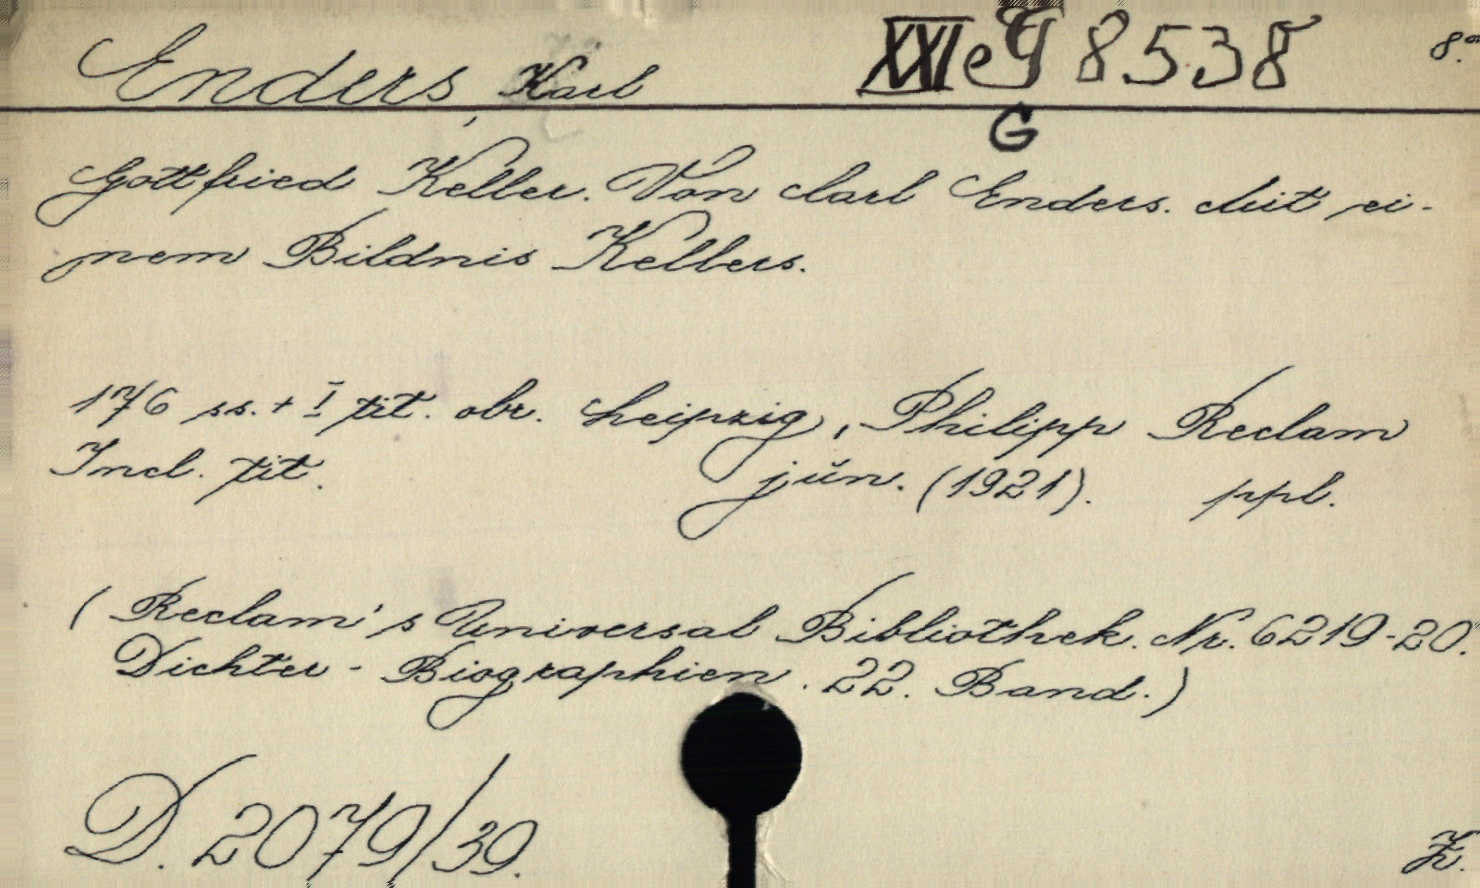 Enders, Karl XXI e G 8538 8°
G
Gottfried Keller. Von Carl Enders. Mit ei-
nem Bildnis Kellers.
176 ss. + I tit. obr. Leipzig, Philipp Reclam
Incl. tit. jŭn. (1921). ppl.
( Reclam's Universal Bibliothek. Nr. 6219-20.
Dichter - Biographien. 22. Band.)
D. 2079/39.